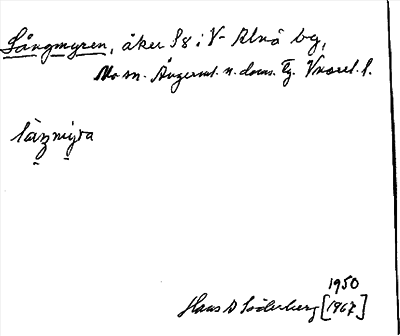 Långmyren, åker S8 i V- Alnö by,
Mo sn. Ångerml. n. doms. Tg. Vnorrl. l.
låŋmy̱ra
1950
Hans D Söderberg [1967]